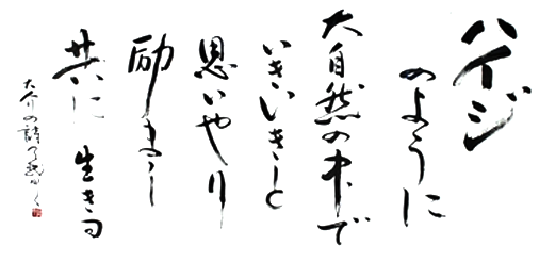 ハイジ
のように
大自然の中で
いきいきと
思いやり
励まし
共に 生きる
大介の詩